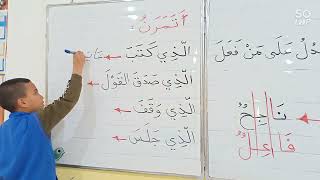 أَتَمَرَّنُ
الَّذِي كَتَبَ ← كَاتِبٌ
الَّذِي صَدَقَ الْقَوْلَ ←
الَّذِي وَقَفَ ←
الَّذِي جَلَسَ ←
دُلُّ عَلَى مَنْ فَعَلَ
نَاجِحٌ
فَاعِلٌ